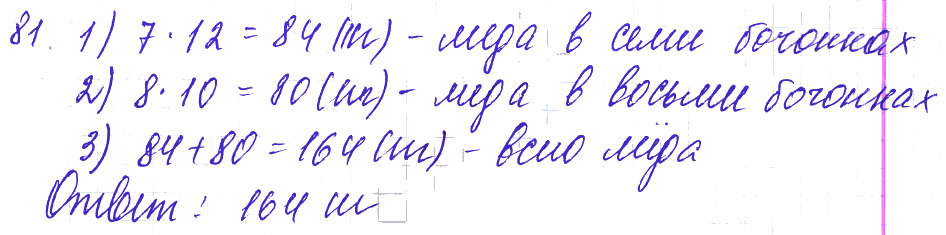 81. 1) 7 · 12 = 84 (кг) – мёда в семи бочонках
2) 8 · 10 = 80 (кг) – мёда в восьми бочонках
3) 84 + 80 = 164 (кг) – всего мёда
Ответ: 164 кг